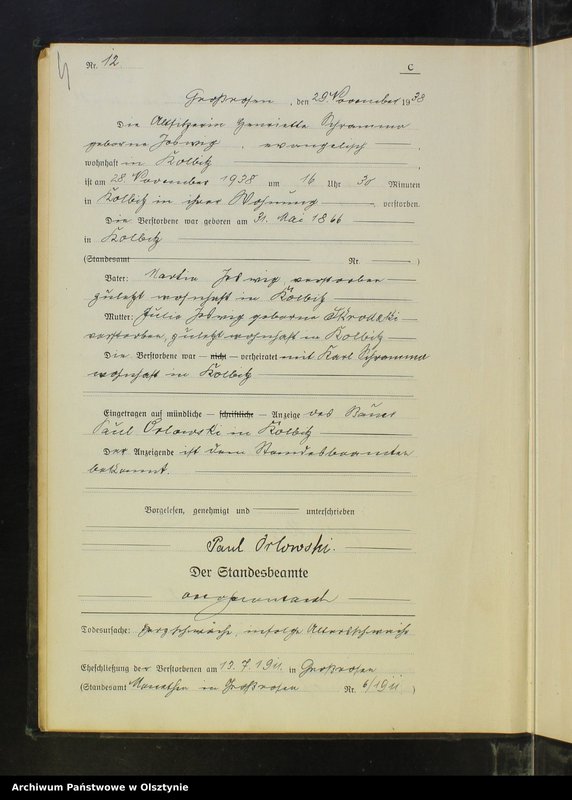 Nr. 12
C
Großrosen, den 29. November 1938
Die Altsitzerin Henriette Schramma
geborne Joswig, evangelisch
wohnhaft in Kölbitz
ist am 28. November 1938 um 16 Uhr 30 Minuten
in Kölbitz in ihrer Wohnung verstorben.
Die Verstorbene war geboren am 31. Mai 1866
in Kolbitz
(Standesamt Nr. )
Vater: Martin Joswig, verstorben
zuletzt wohnhaft in Kölbitz
Mutter: Julie Joswig geborne Skrodzki
verstorben, zuletzt wohnhaft in Kolbitz
Die Verstorbene war — nicht — verheiratet mit Karl Schramma
wohnhaft in Kolbitz
Eingetragen auf mündliche — schriftliche — Anzeige des Bauer
Paul Orlowski in Kölbitz
Der Anzeigende ist dem Standesbeamten
bekannt.
Vorgelesen, genehmigt und unterschrieben
Paul Orlowski.
Der Standesbeamte
Todesursache: Herzschwäche, infolge Altersschwäche
Eheschließung der Verstorbenen am 13.7.1911. in Großrosen
(Standesamt in Großrosen Nr. 6/1911)
Archiwum Państwowe w Olsztynie